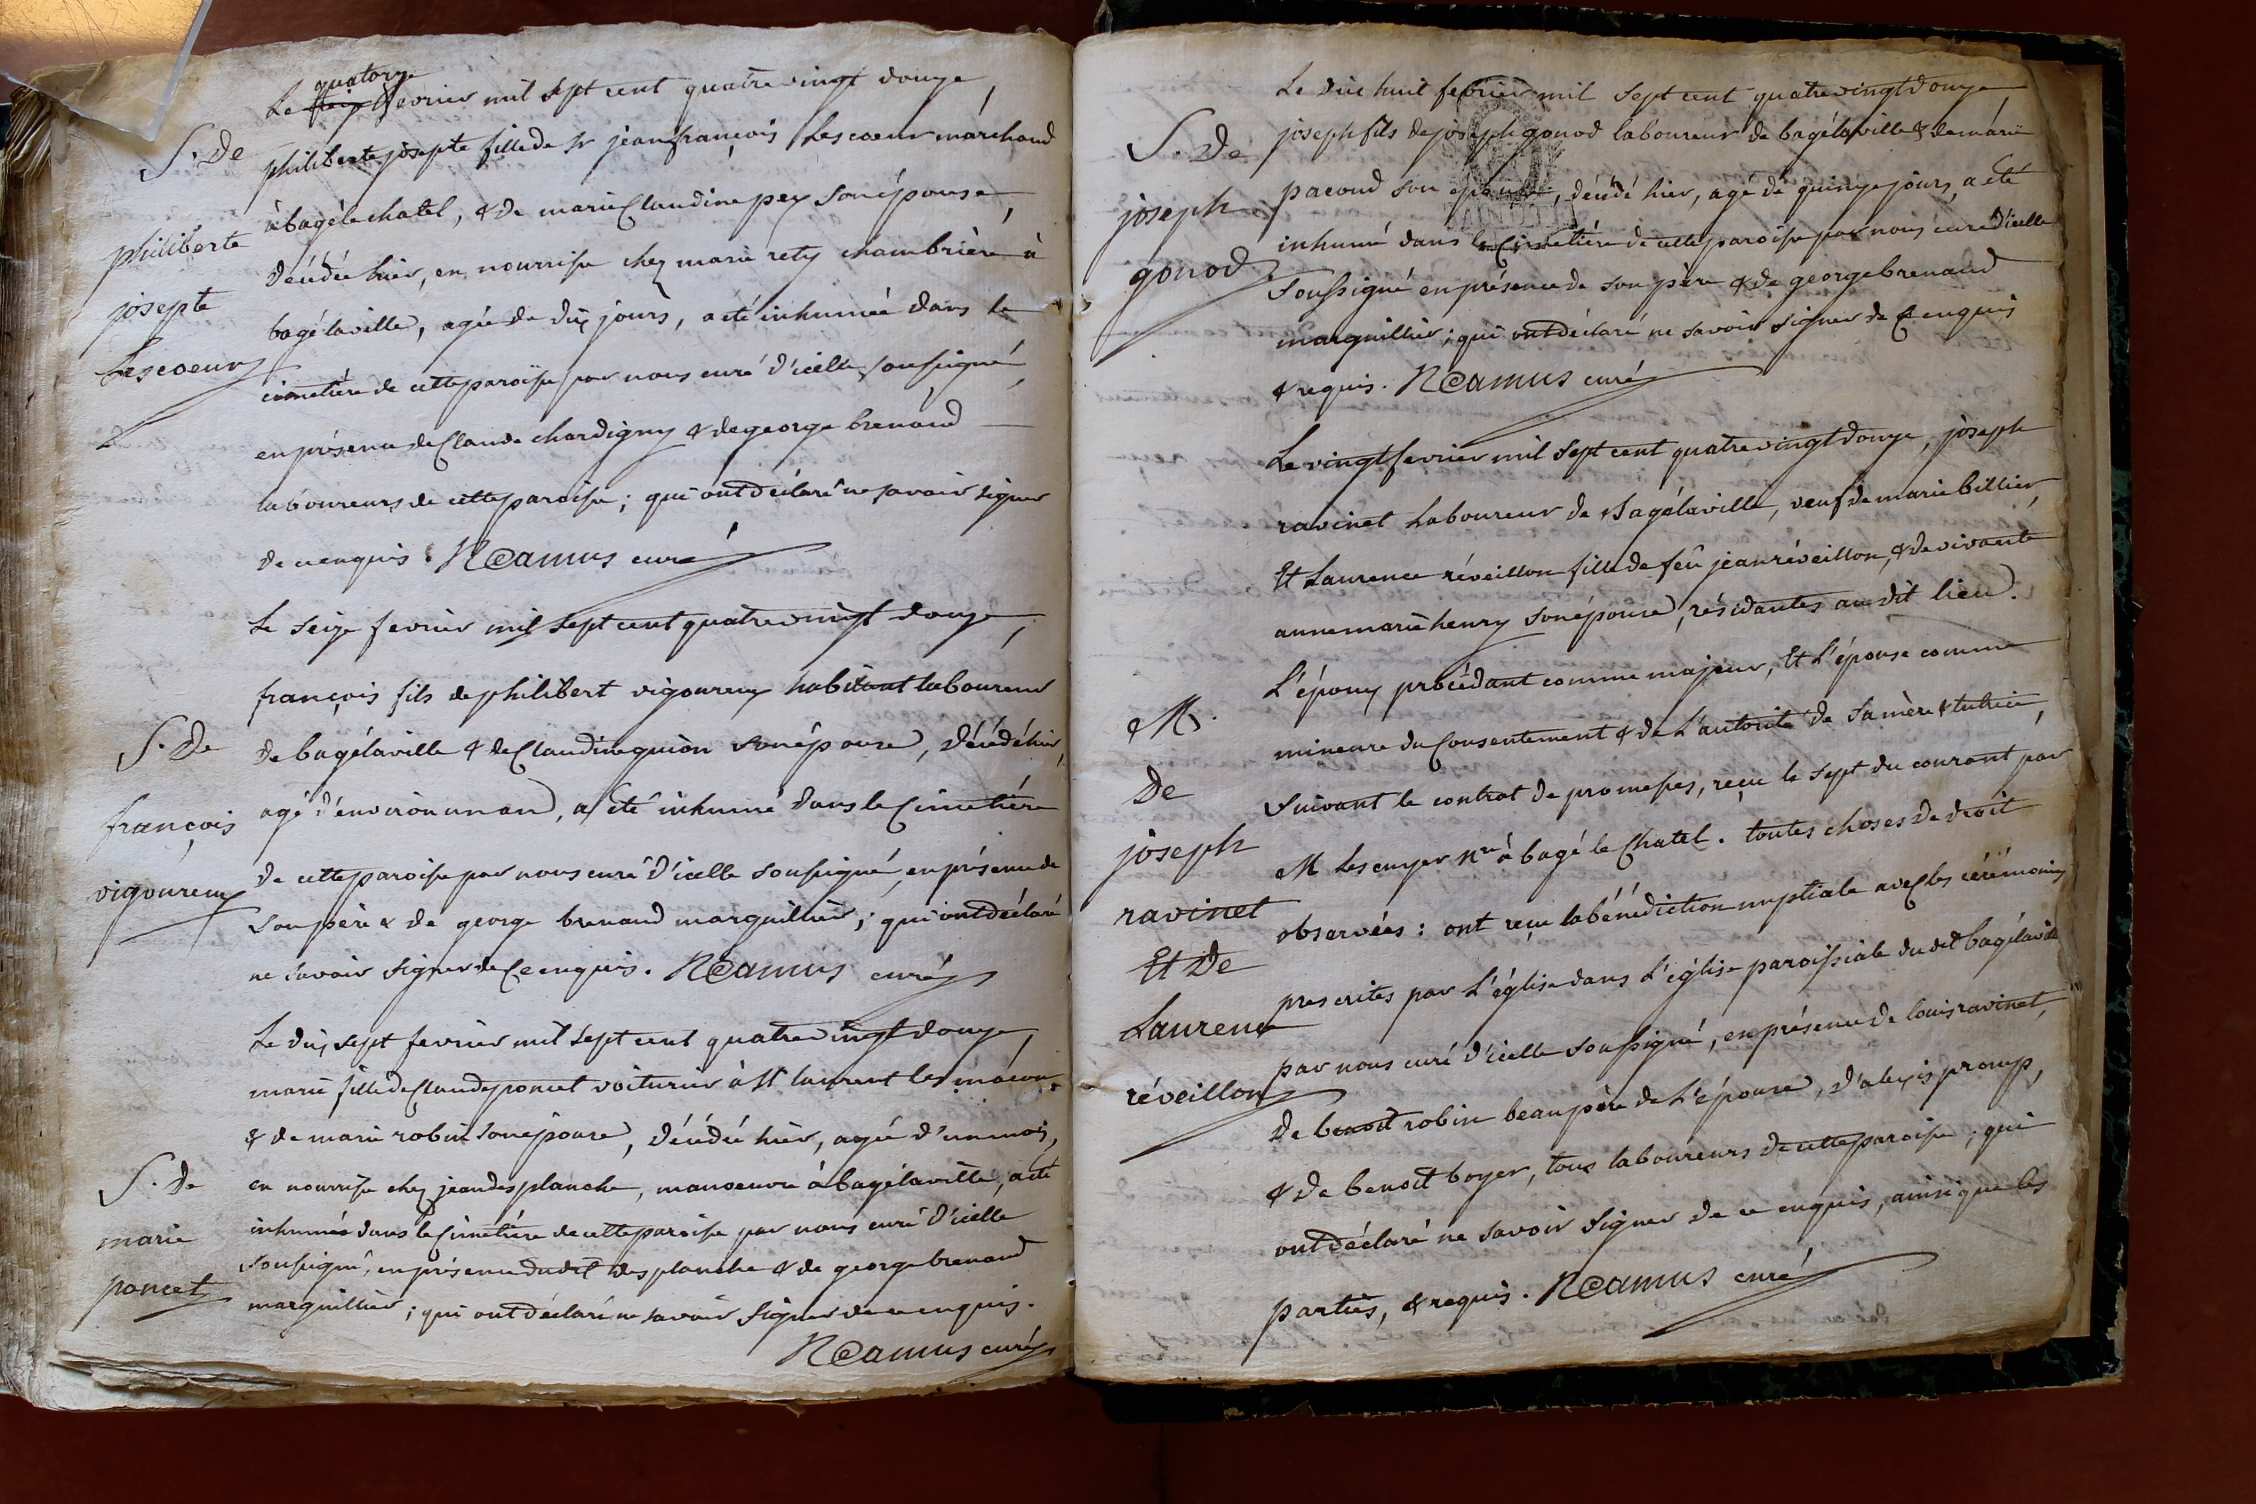 Le quatorze fevrier mil sept cent quatre vingt douze,
S. De
philiberte josepte fille de Sr jean françois Lescoeur marchand
à bagé le chatel, & de marie Claudine pey son épouse,
philiberte
décédée hier, en nourrisse chez marie rety chambrière à
josepte
bagélaville, agée de dix jours, a été inhumée dans le
Lescoeur
cimetière de cette paroisse par nous curé d'icelle soussigné,
en présence de Claude chardigny & de george brenaud
laboureurs de cette paroisse; qui ont déclaré ne savoir signer
de ce enquis. N Camus curé
Le seize fevrier mil sept cent quatre vingt douze,
françois fils de philibert vigoureux habitant laboureur
S. De
de bagélaville & de Claudine guion son épouse, décédé hier,
françois
agé d'environ un an, a été inhumé dans le Cimetière
de cette paroisse par nous curé d'icelle soussigné, en présence de
vigoureux
son père & de george brenaud marguillier; qui ont déclaré
ne savoir signer de Ce enquis. N Camus curé
Le dix sept fevrier mil sept cent quatre vingt douze,
marie fille de Claude poncet voiturier à St laurent les mâcon
& de marie robin son épouse, décédée hier, agée d'un mois,
S. De
en nourrisse chez jean desplanche, manoeuvre à bagélaville, a été
marie
inhumée dans le Cimetière de cette paroisse par nous curé d'icelle
soussigné, en présence dudit desplanche & de george brenaud
poncet
marguillier; qui ont déclaré ne savoir signer de ce enquis.
N Camus curé
Le dix huit fevrier mil sept cent quatre vingt douze,
S. De
joseph fils de joseph gonod laboureur de bagélaville & de marie
joseph
pacoud son épouse, décédé hier, agé de quinze jours, a été
inhumé dans le Cimetière de cette paroisse par nous curé d'icelle
gonod
soussigné en présence de son père & de george brenaud
marguillier; qui ont déclaré ne savoir signer de Ce enquis
& requis. N Camus curé
Le vingt fevrier mil sept cent quatre vingt douze, joseph
ravinet laboureur de Bagélaville, veuf de marie billier,
Et Laurence réveillon fille de feû jean réveillon, & de vivante
anne marie henry son épouse, résidantes au dit lieu.
M.
L'époux procédant comme majeur, Et L'épouse comme
mineure du Consentement & de L'autorité de Sa mère & tutrice,
De
suivant le contrat de promesses, reçu le sept du courant par
joseph
M Lescuyer Nre à bagé le Chatel. toutes choses de droit
ravinet
observées: ont reçu la bénédiction nuptiale avec les cérémonies
Et De
prescrites par L'église dans L'église paroissiale du dit bagélaville
Laurence
par nous curé d'icelle soussigné, en présence de louis ravinet,
réveillon
De benoit robin beaupère de L'épouse, d'alexis
& De benoit boyer, tous laboureurs de cette paroisse; qui
ont déclaré ne savoir signer de ce enquis, ainsi que les
parties, & requis. N Camus curé